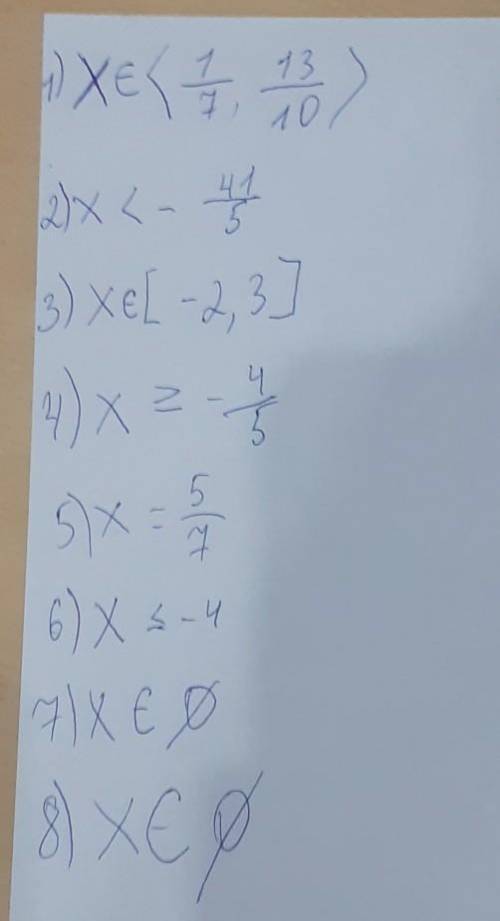 1) X ∈ ⟨ 1/7, 13/10 ⟩
2) x < - 41/5
3) X ∈ [ -2, 3 ]
4) X ≥ - 4/5
5) X = 5/7
6) X ≤ -4
7) X ∈ ∅
8) X ∈ ∅